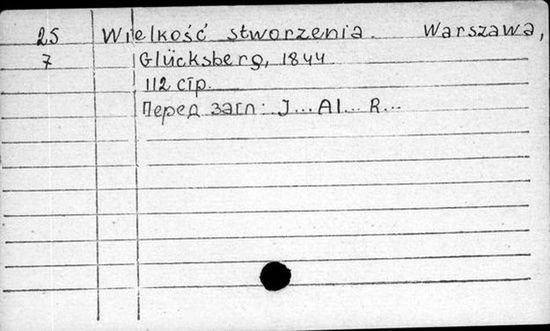 25 Wielkość stworzenia. Warszawa,
7 Glücksberg, 1844
112 стр.
Перед загл: J... Al... R...